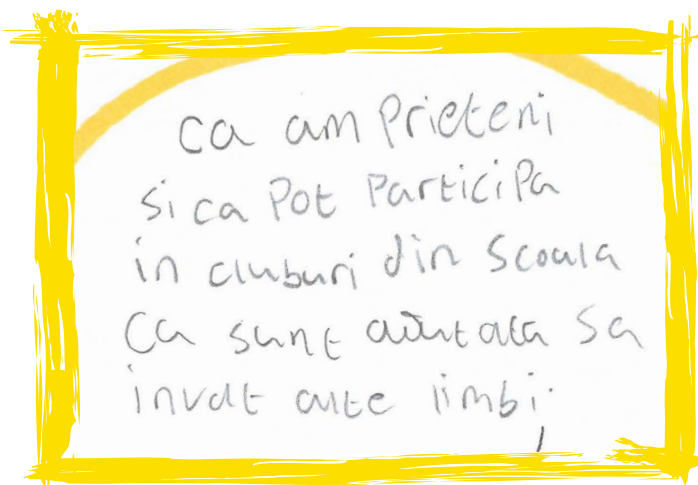 ca am prieteni
si ca Pot Participa
in cluburi din scoala
Ca sunt aiutata sa
invat alte limbi;